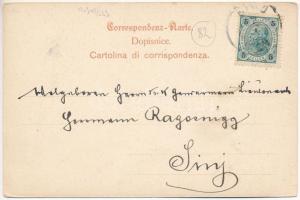 Correspondenz-Karte.
82
Dopisnice.
Cartolina di corrispondenza.
5 5
Wolgeboren Herrn k. k. Gendarmerie Lieutenant
Hermann Ragoznigg
Sinj